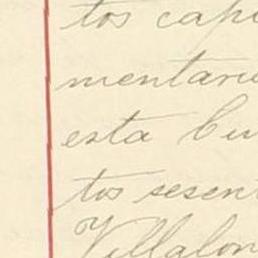 tos capi
mentari
esta Cu
tos sesent
Villalon